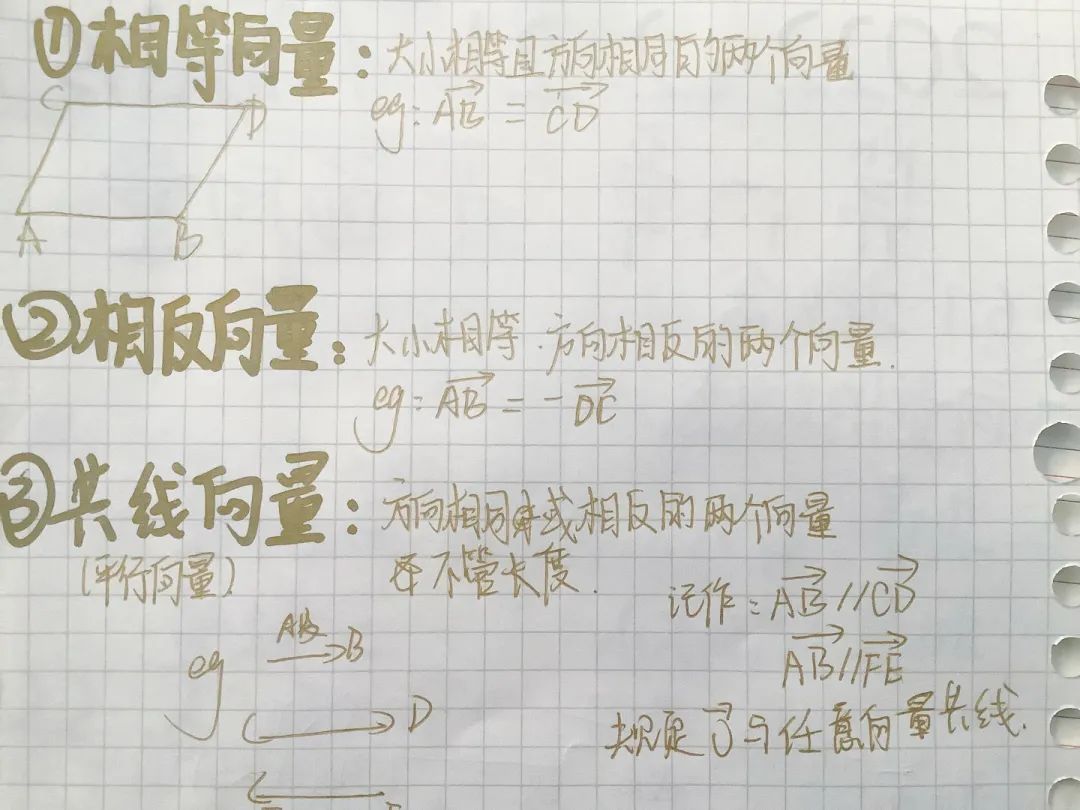 ①相等向量:大小相等且方向相同的两个向量
eg:AB = CD
C D
A B
②相反向量:大小相等.方向相反的两个向量.
eg:AB=-DC
③共线向量:方向相同或相反的两个向量
(平行向量) 不管长度.
记作:AB//CD
eg A B
AB//FE
C D
规定 0 与任意向量共线.